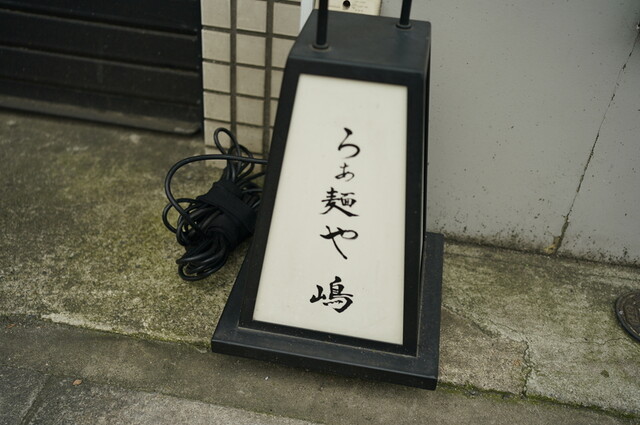 らぁ麺や
嶋